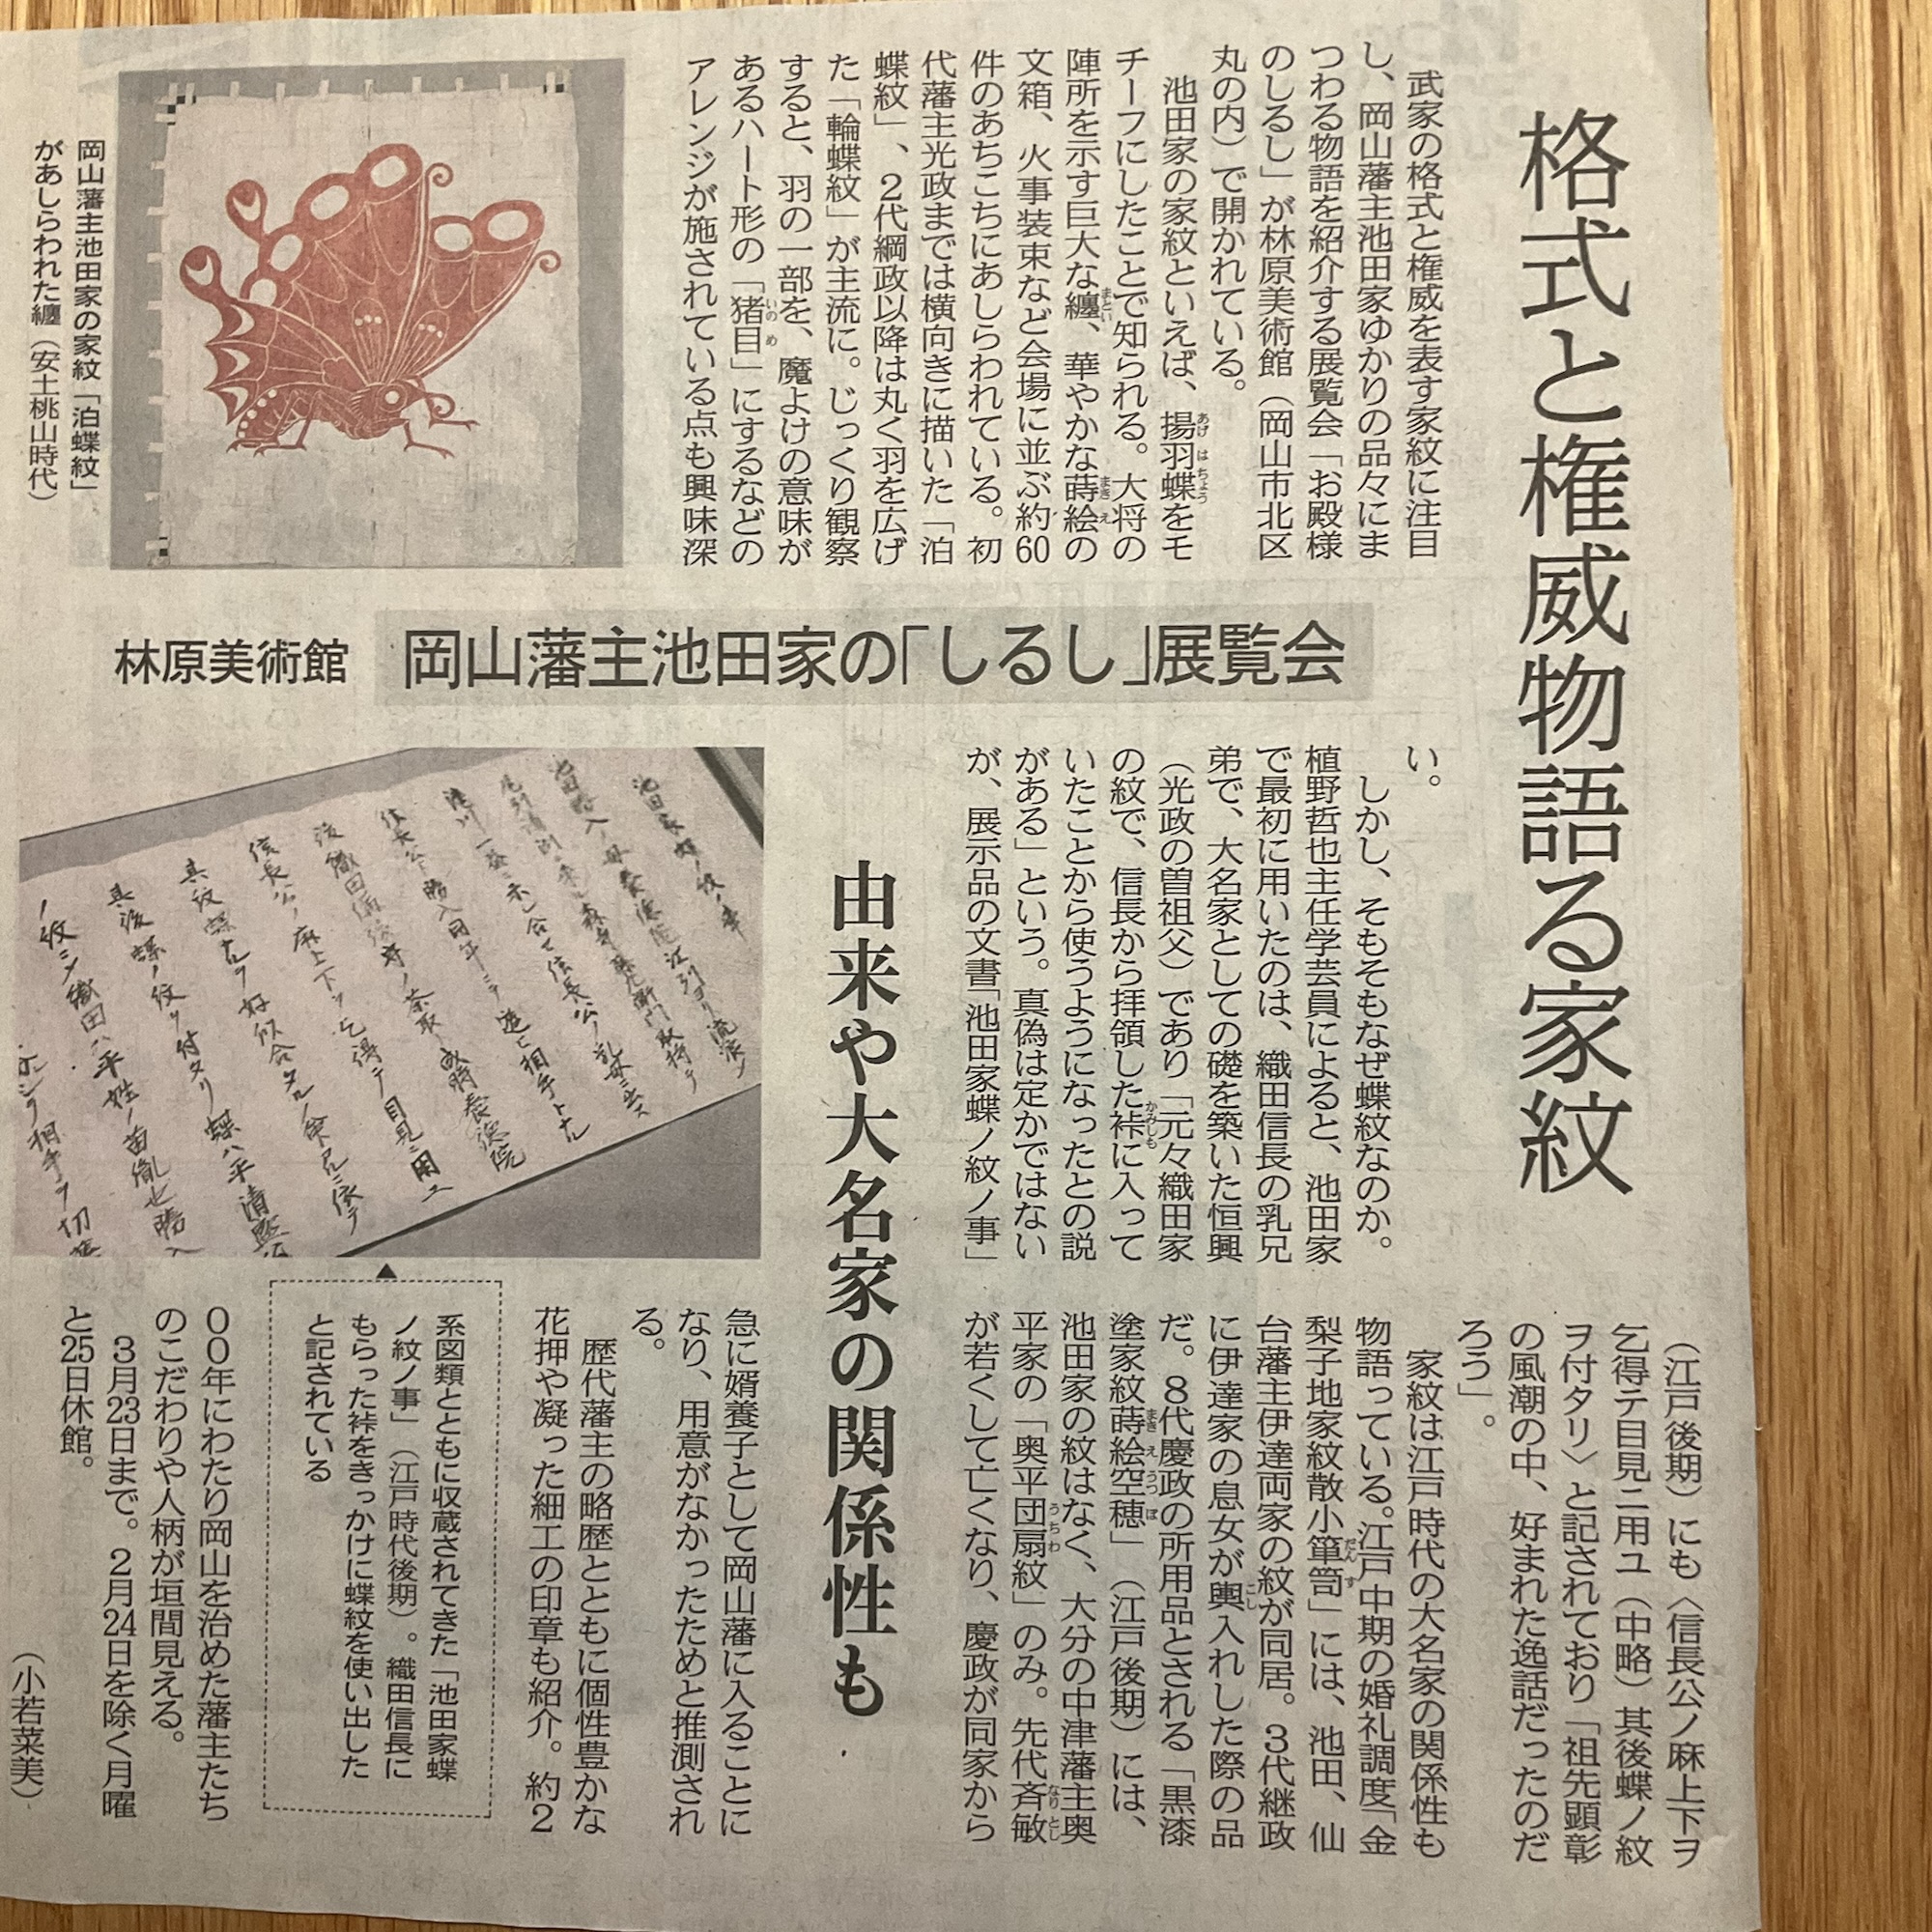 格式と権威物語る家紋
武家の格式と権威を表す家紋に注目
し、岡山藩主池田家ゆかりの品々にま
つわる物語を紹介する展覧会「お殿様
のしるし」が林原美術館（岡山市北区
丸の内）で開かれている。
池田家の家紋といえば、揚羽蝶をモ
チーフにしたことで知られる。大将の
陣所を示す巨大な纏、華やかな蒔絵の
文箱、火事装束など会場に並ぶ約60
件のあちこちにあしらわれている。初
代藩主光政までは横向きに描いた「泊
蝶紋」、２代綱政以降は丸く羽を広げ
た「輪蝶紋」が主流に。じっくり観察
すると、羽の一部を、魔よけの意味が
あるハート形の「猪目」にするなどの
アレンジが施されている点も興味深
岡山藩主池田家の家紋「泊蝶紋」
があしらわれた纏（安土桃山時代）
岡山藩主池田家の「しるし」展覧会
林原美術館
い。
しかし、そもそもなぜ蝶紋なのか。
植野哲也主任学芸員によると、池田家
で最初に用いたのは、織田信長の乳兄
弟で、大名家としての礎を築いた恒興
（光政の曽祖父）であり「元々織田家
の紋で、信長から拝領した裃に入って
いたことから使うようになったとの説
がある」という。真偽は定かではない
が、展示品の文書「池田家蝶ノ紋ノ事」
由来や大名家の関係性も
（江戸後期）にも〈信長公ノ麻上下ヲ
乞得テ目見ニ用ユ（中略）其後蝶ノ紋
ヲ付タリ〉と記されており「祖先顕彰
の風潮の中、好まれた逸話だったのだ
ろう」。
家紋は江戸時代の大名家の関係性も
物語っている。江戸中期の婚礼調度「金
梨子地家紋散小簞笥」には、池田、仙
台藩主伊達両家の紋が同居。３代継政
に伊達家の息女が輿入れした際の品
だ。８代慶政の所用品とされる「黒漆
塗家紋蒔絵空穂」（江戸後期）には、
池田家の紋はなく、大分の中津藩主奥
平家の「奥平団扇紋」のみ。先代斉敏
が若くして亡くなり、慶政が同家から
急に婿養子として岡山藩に入ることに
なり、用意がなかったためと推測され
る。
歴代藩主の略歴とともに個性豊かな
花押や凝った細工の印章も紹介。約２
００年にわたり岡山を治めた藩主たち
のこだわりや人柄が垣間見える。
３月23日まで。２月24日を除く月曜
と25日休館。
（小若菜美）
系図類とともに収蔵されてきた「池田家蝶
ノ紋ノ事」（江戸時代後期）。織田信長に
もらった裃をきっかけに蝶紋を使い出した
と記されている